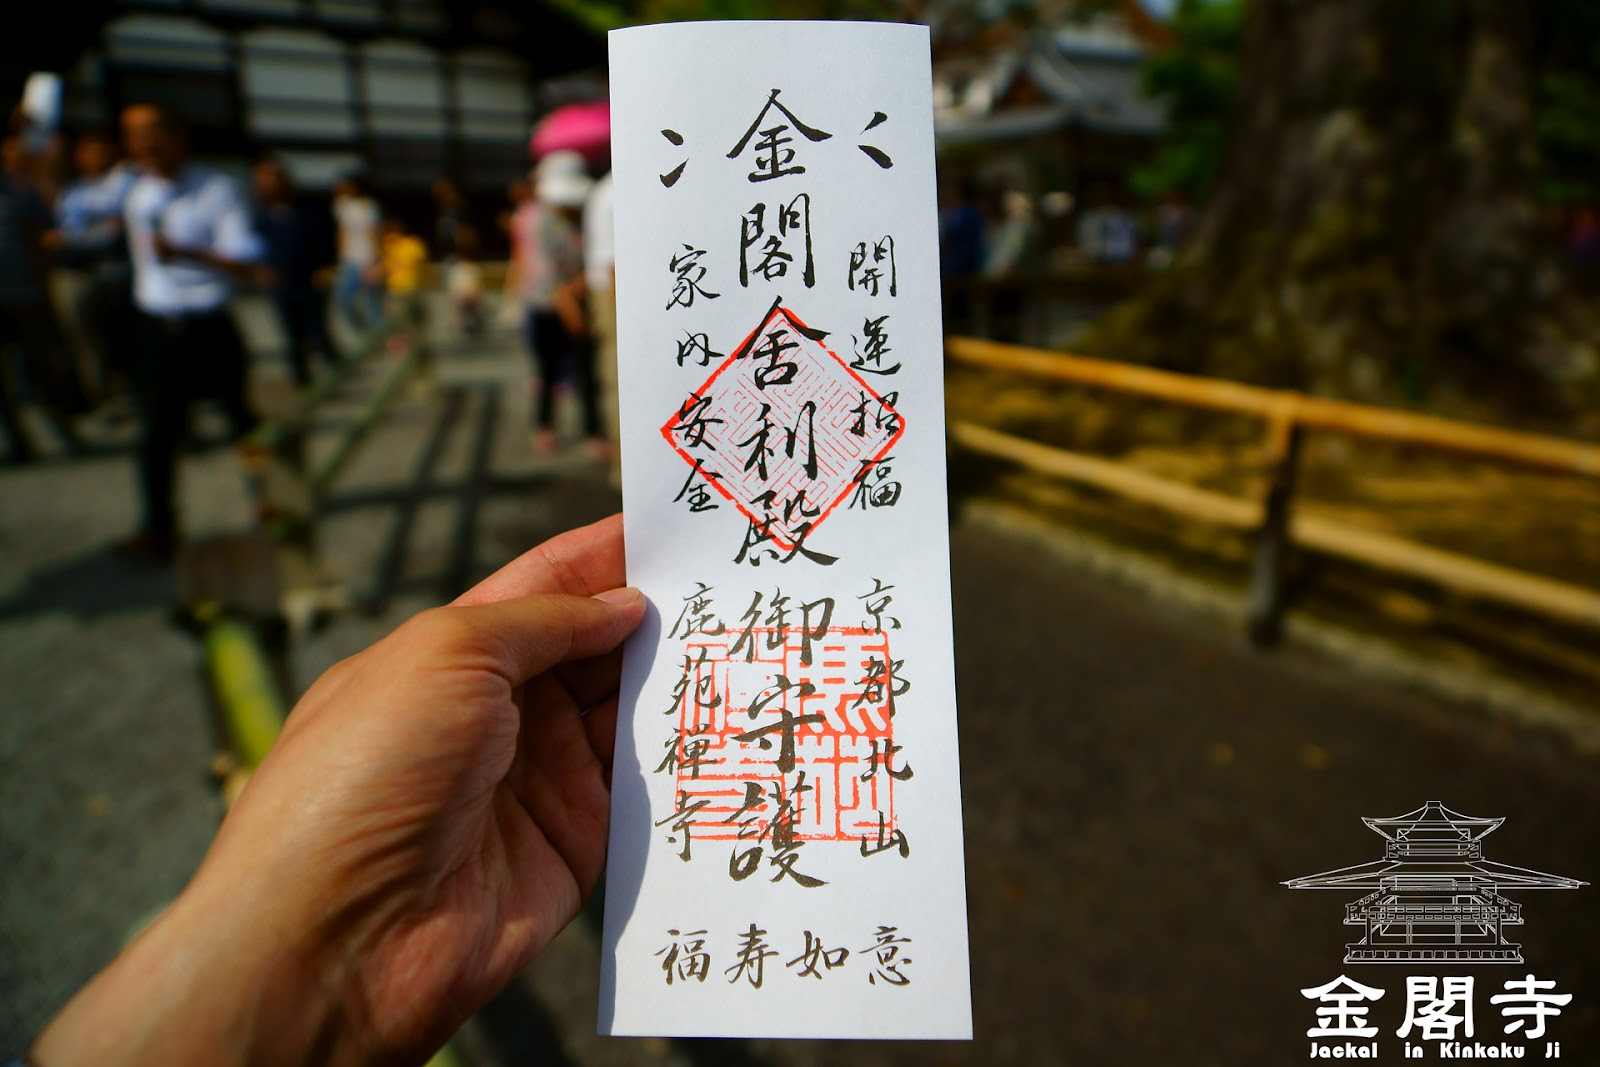 開運招福
京都北山
金閣舎利殿
御守護
家内安全
鹿苑禅寺
福寿如意
金閣寺
Jackal in Kinkaku Ji